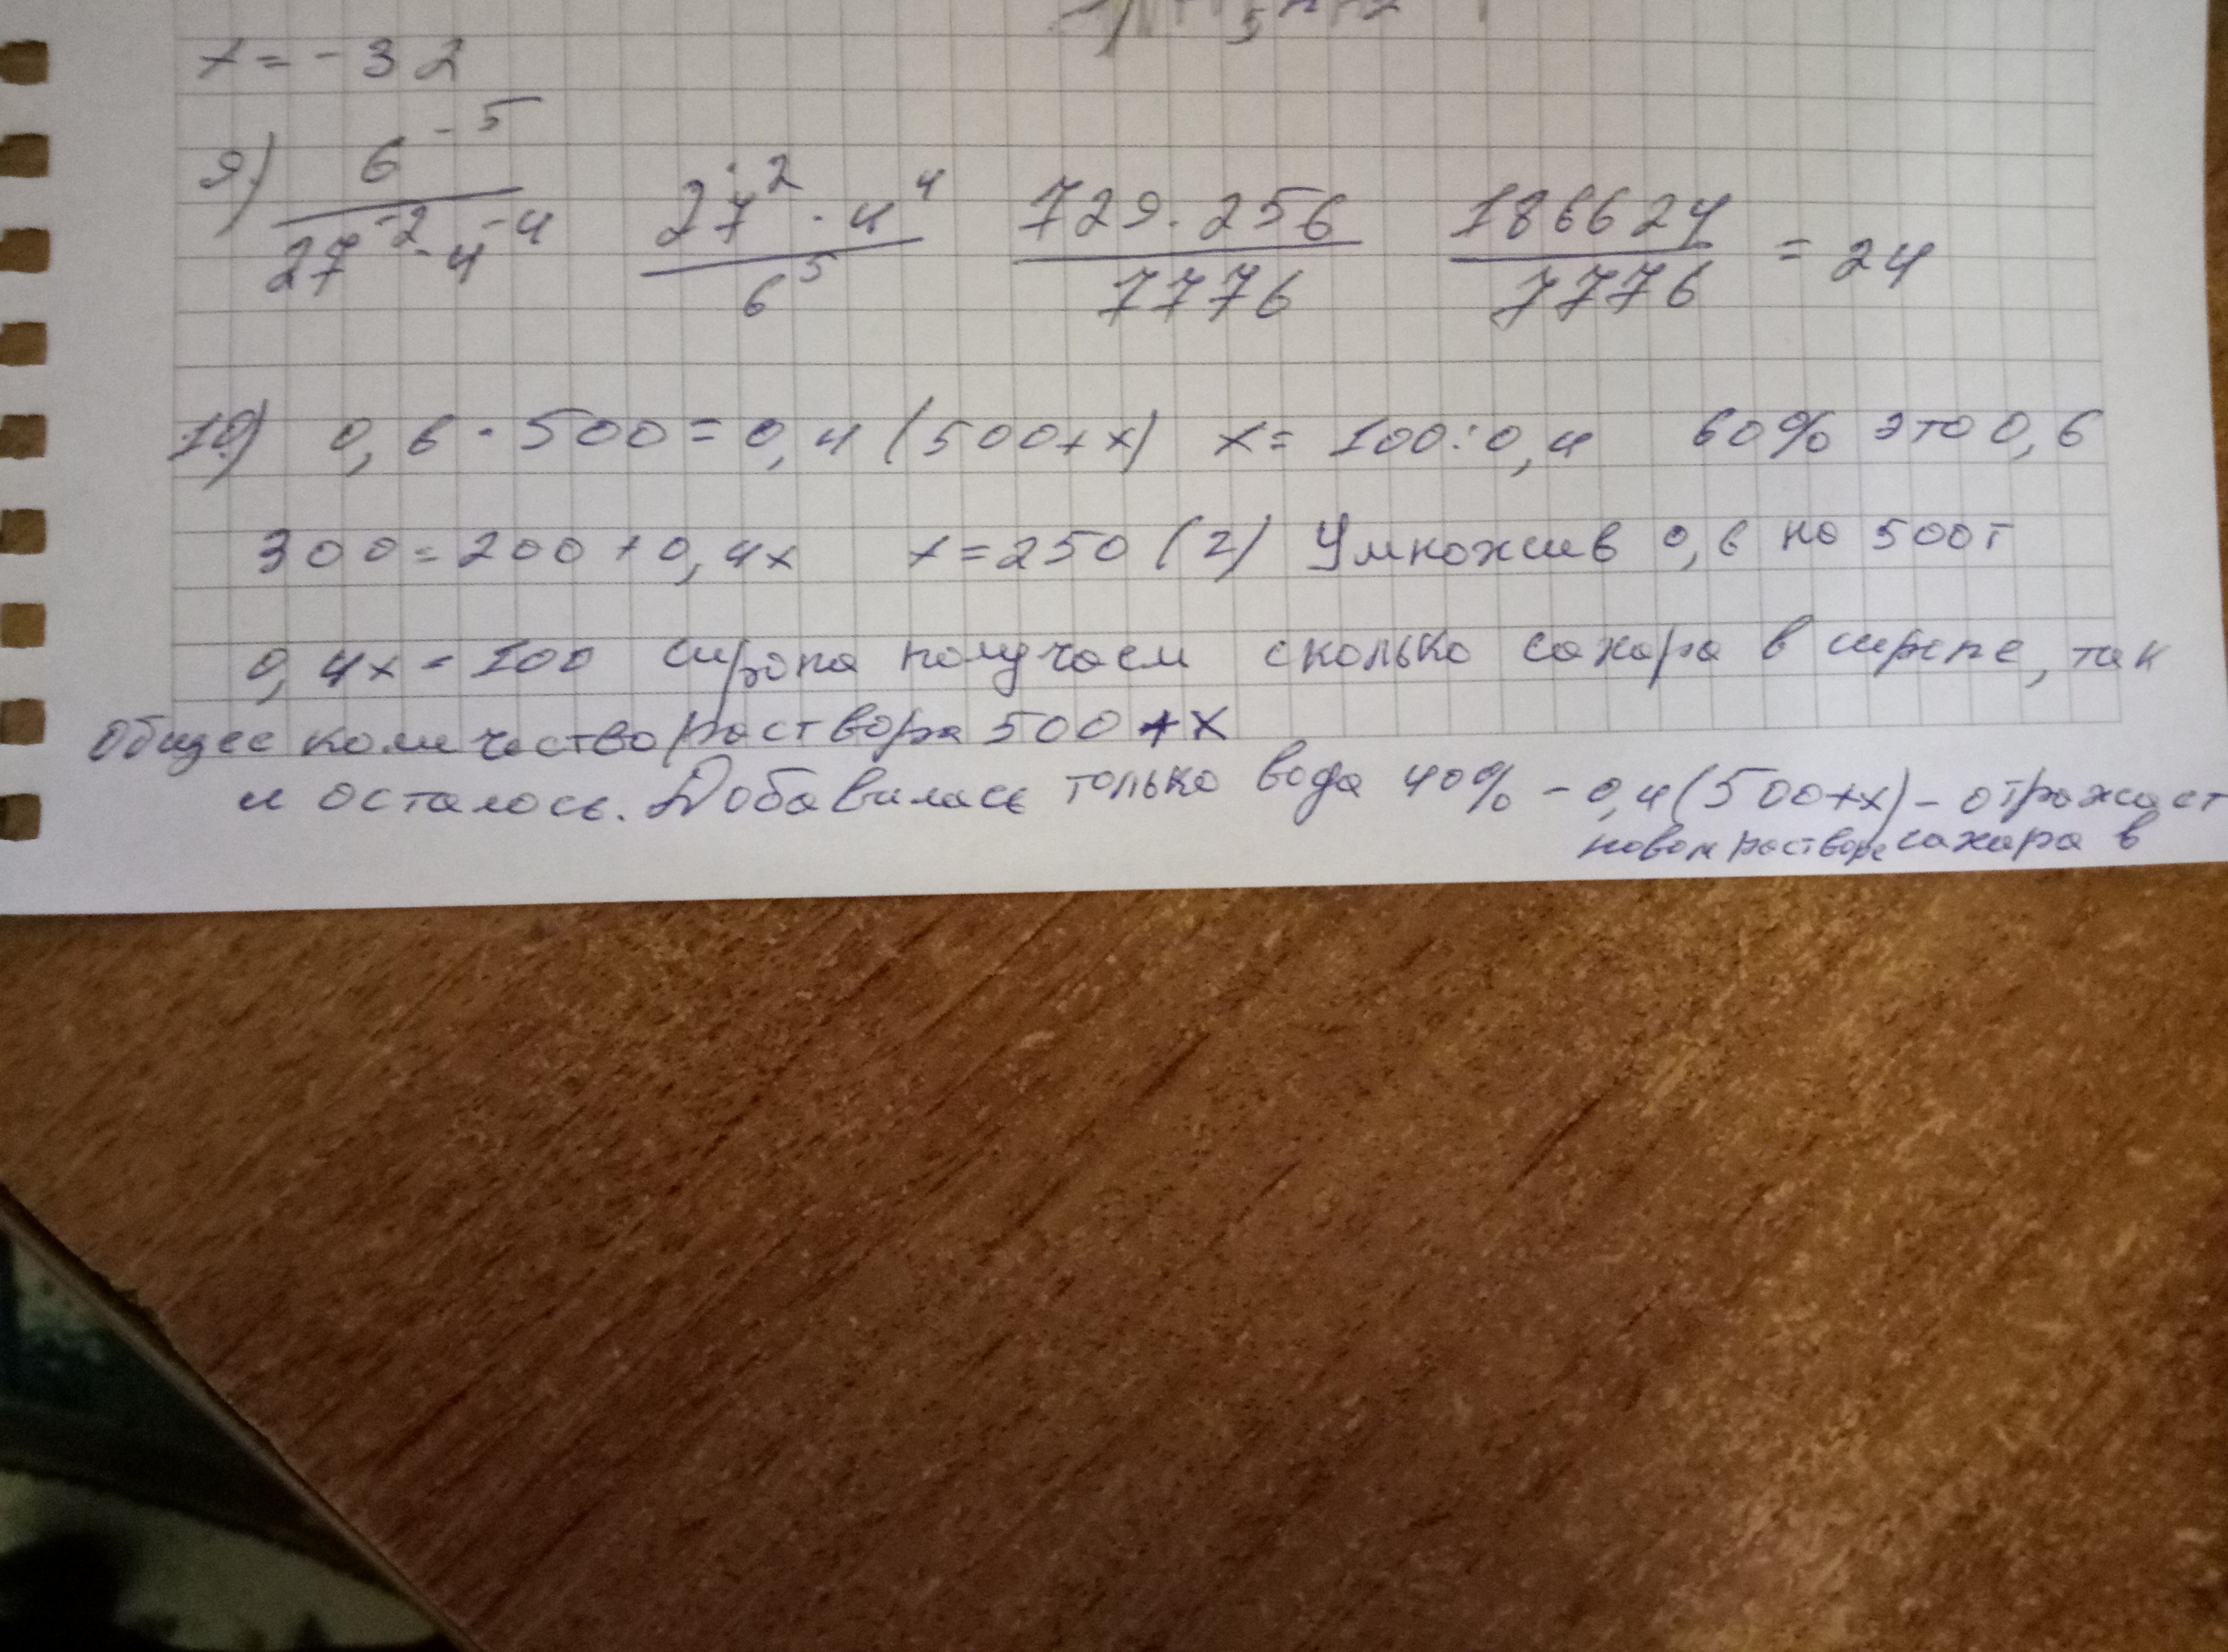 x = - 32
9) 6^-5 / 27^-2 · 4^-4   27^2 · 4^4 / 6^5   729 · 256 / 7776   186624 / 7776 = 24
10) 0,6 · 500 = 0,4 (500+x)   x = 100 : 0,4   60% это 0,6
300 = 200 + 0,4x   x = 250 (г) Умножив 0,6 на 500г
0,4x = 100 сиропа получаем сколько сахара в сиропе, так
Общее количество раствора 500 + X
и осталось. Добавилась только вода 40% - 0,4(500+x) - отражает
новом растворе сахара в